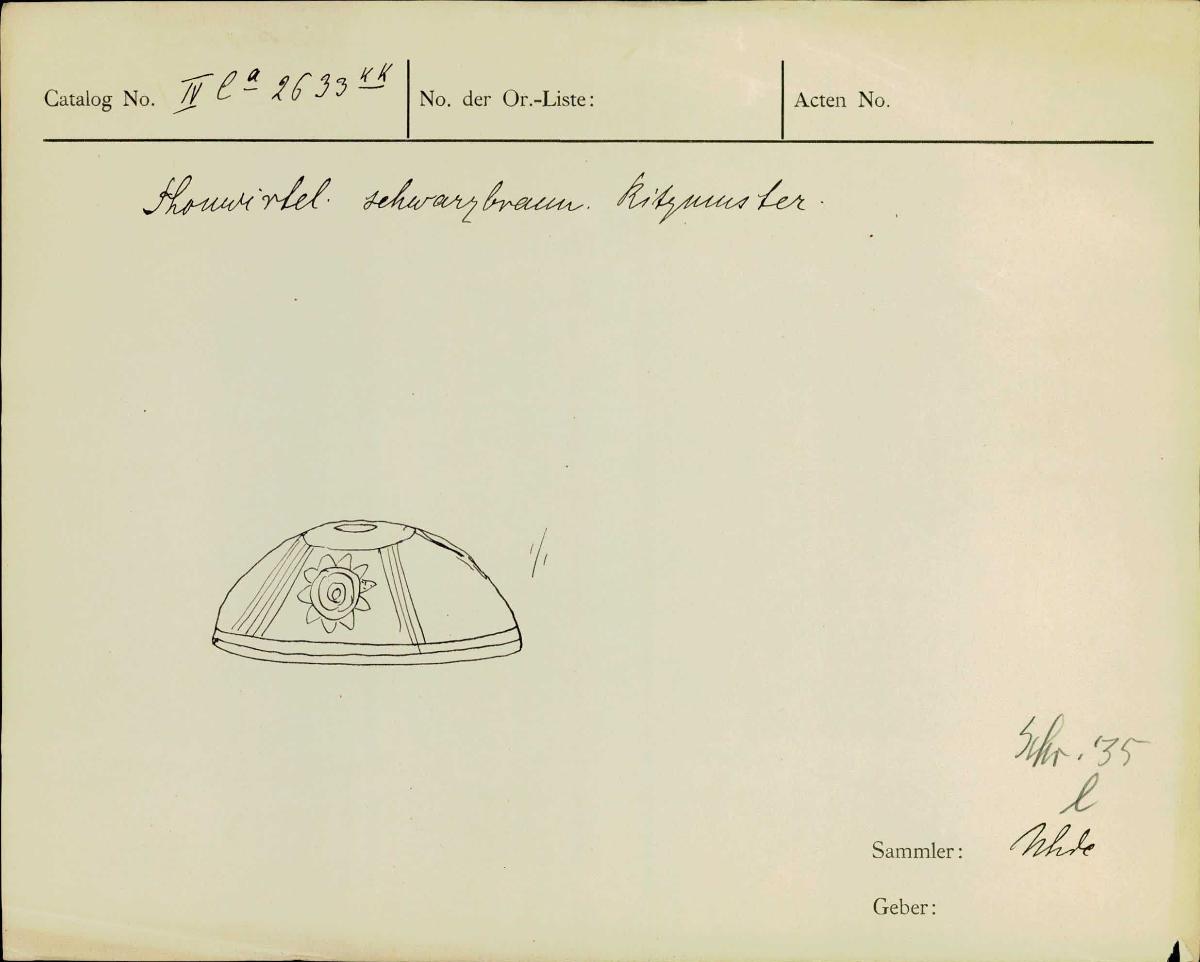 Catalog No. IV Ca 2633 KK No. der Or.-Liste: Acten No.
Thonwirtel. schwarzbraun. Ritzmuster.
1/1
Schr. 35
l
Sammler: Uhde
Geber: